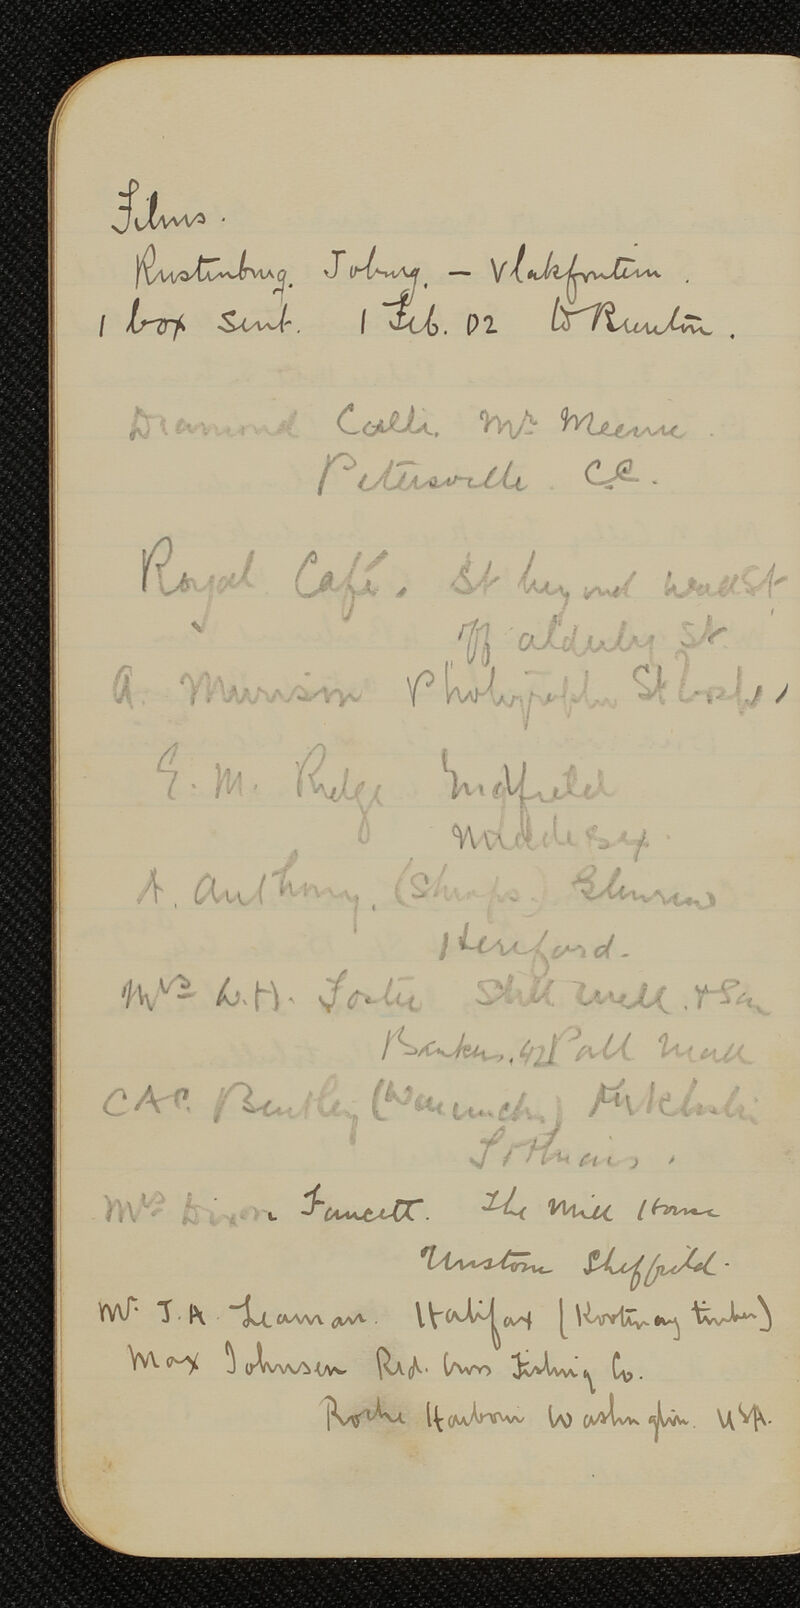 Films.
Rustenburg. Joburg. – Vlakfontein.
1 box sent. 1 Feb. 02 to Runton.
Diamond Mr
Petersville. C.C.
Royal Café. St beyond Wall St
off alderley St.
A. Murison Photographer St
E. M. Ridge Engfield
Middlesex.
A. Anthony. (Shrops.) Glenview
Hereford.
Mrs W.H. Foster Still well & Son
Bankers. 42 Pall Mall
CAP. Bentley (Warwicks)
St
Mrs Dixon Fawcett. The Mill House
Unstone Sheffield.
Mr. J.A. Leaman. Halifax (Kootenay timber)
Max Johnsen Red. Cross Fishing Co.
Roche Harbour Washington. USA.